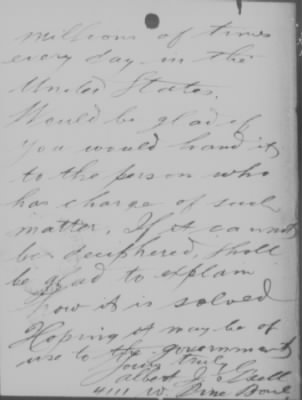 millions of times
every day in the
United States.
Would be glad if
you would hand it
to the person who
has charge of such
matter. If it cannot
be deciphered, shall
be glad to explain
how it is solved
Hoping it may be of
use to the government
Yours truly
Albert J.
4111 W. Pine